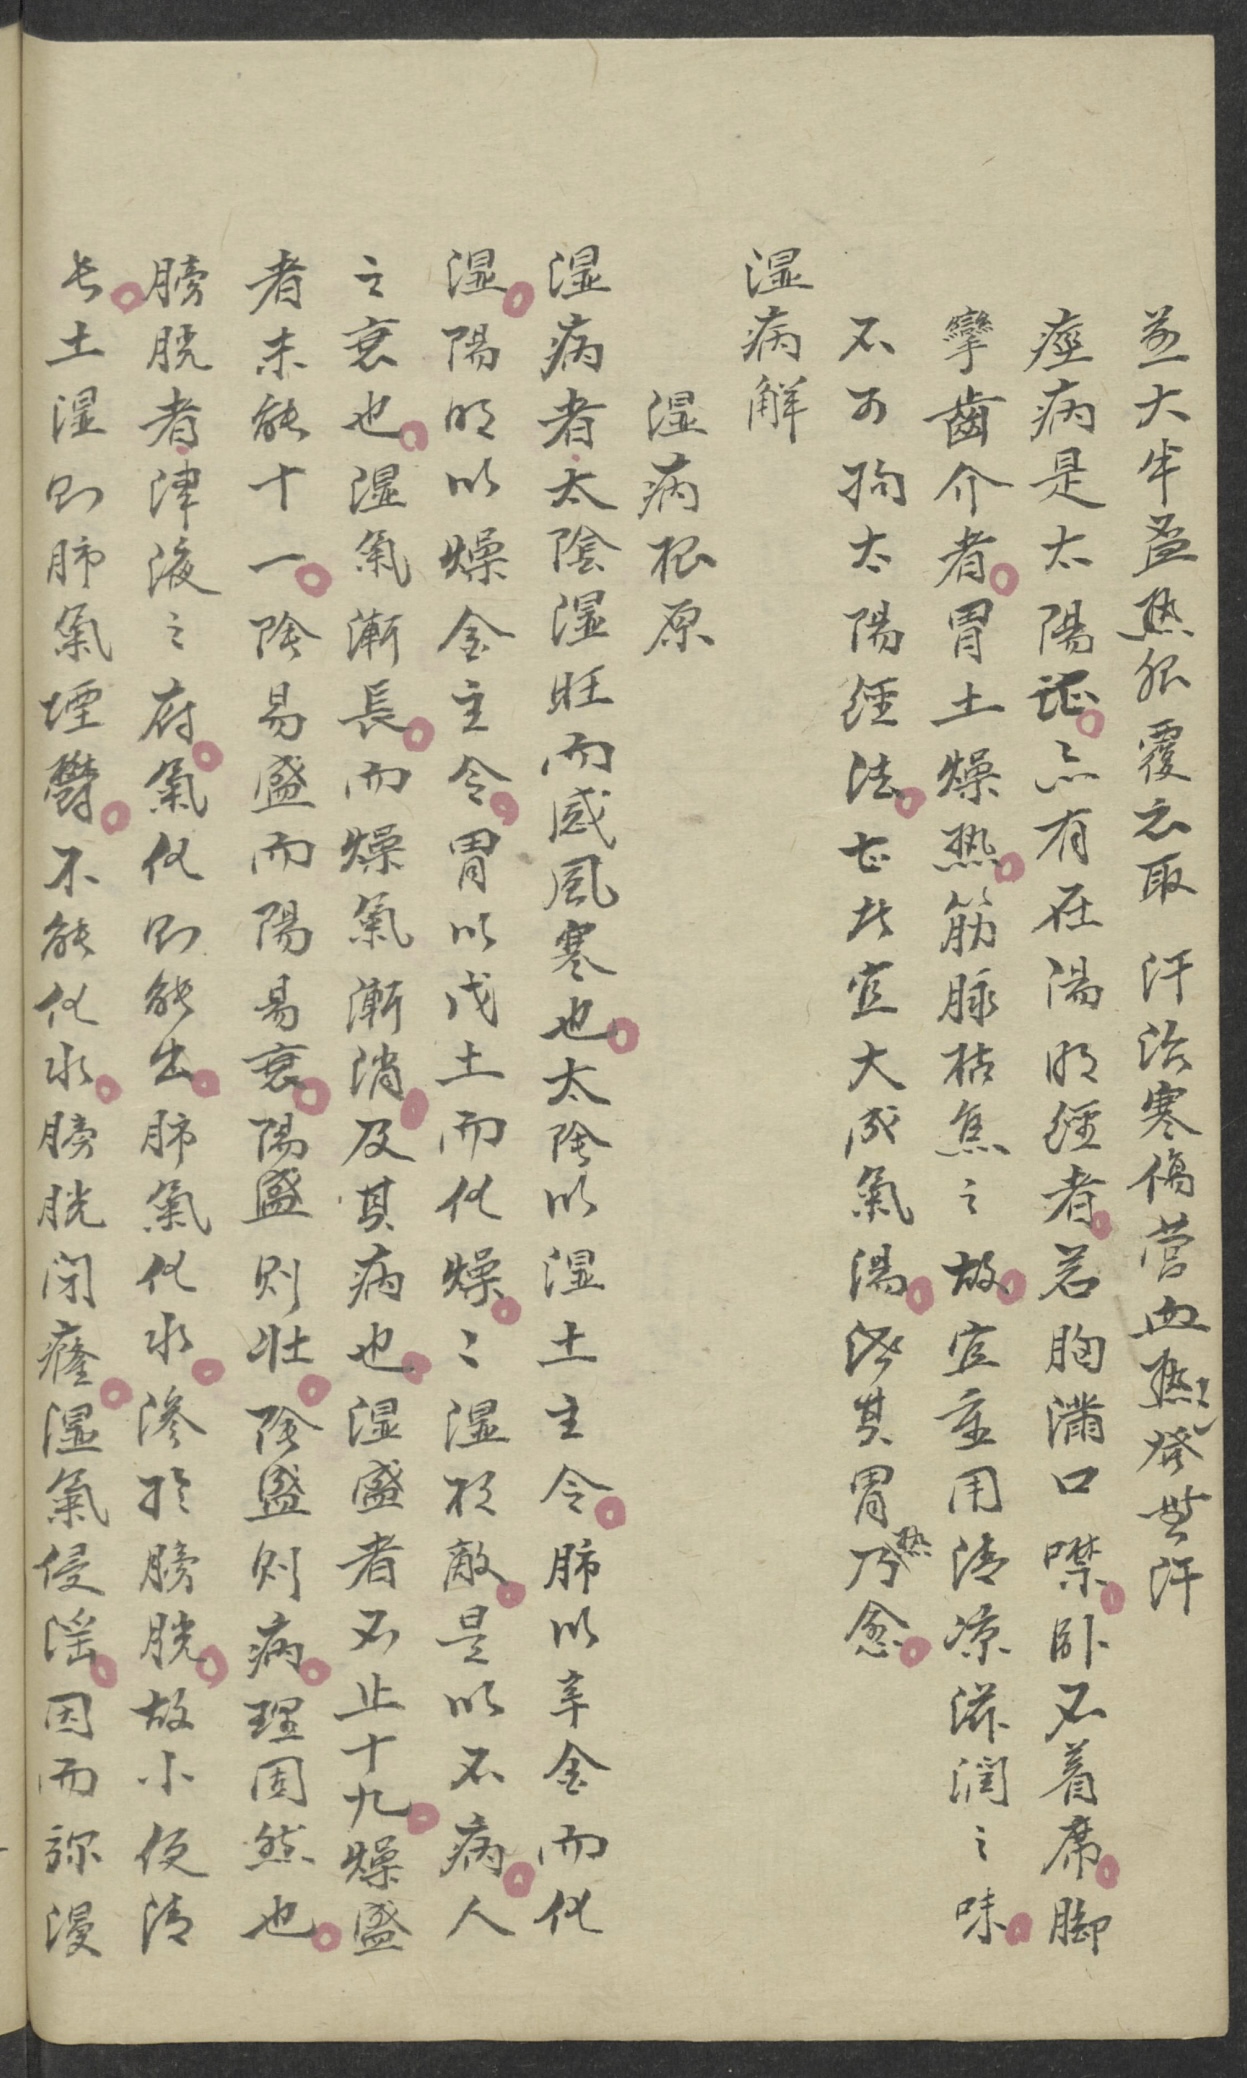 煎大半盃熱服覆衣取 汗治寒傷營血熱証發無汗
痙病是太陽証亦有在陽明經者若胸滿口噤卧不着席脚
攣齒介者胃土燥熱筋脉枯焦之故宜重用清凉滋潤之味
不可拘太陽經法也此宜大承氣湯洩其胃熱乃愈
濕病解
濕病根原
湿病者太陰湿旺而感風寒也太陰以湿土主令肺以辛金而化
湿陽明以燥金主令胃以戊土而化燥燥湿相敵是以不病人
之衰也湿氣漸長而燥氣漸消及其病也湿盛者不止十九燥盛
者未能十一陰易盛而陽易衰陽盛則壯陰盛則病理固然也
膀胱者津液之府氣化則能出肺氣化水滲於膀胱故小便清
長土湿則肺氣堙鬱不能化水膀胱閉癃湿氣侵淫因而弥漫